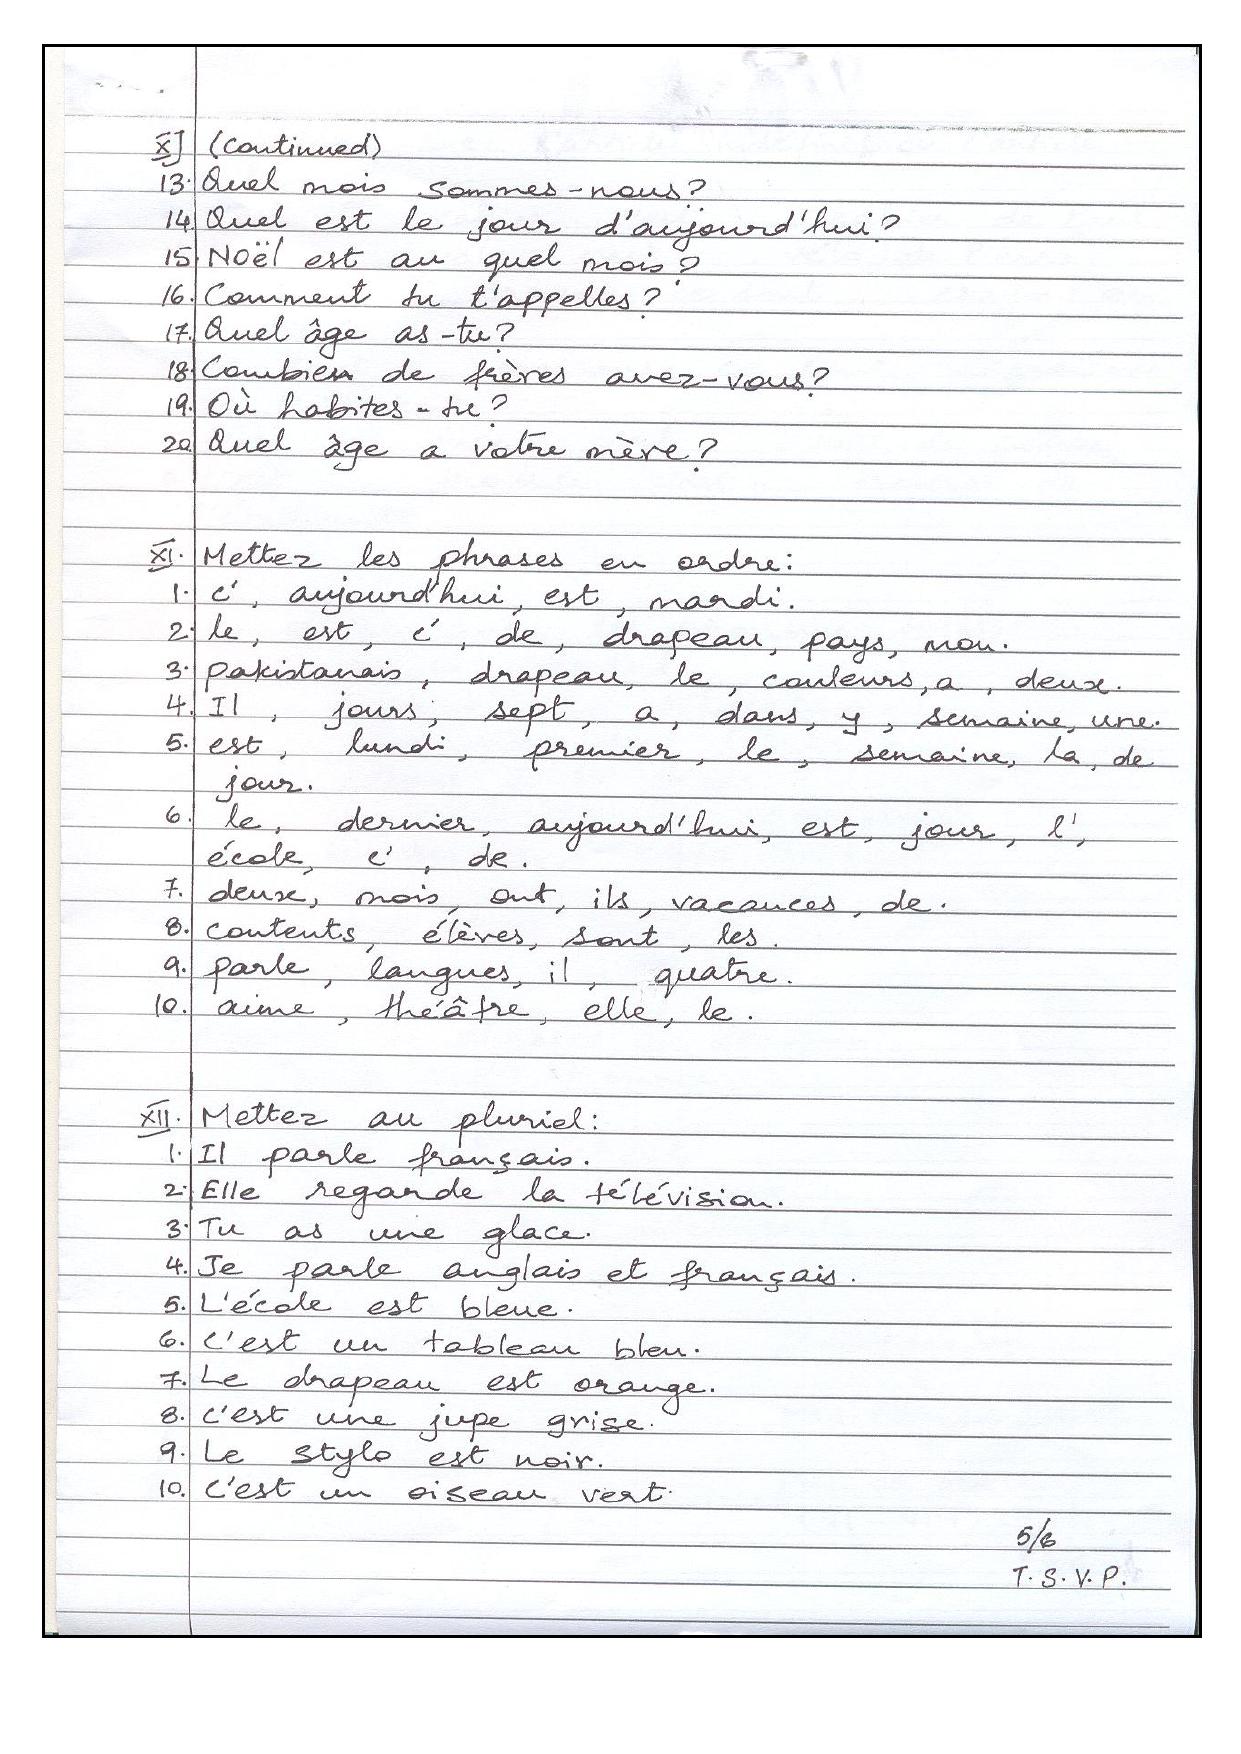 X] (Continued)
13. Quel mois sommes-nous?
14. Quel est le jour d'aujourd'hui?
15. Noël est au quel mois?
16. Comment tu t'appelles?
17. Quel âge as-tu?
18. Combien de frères avez-vous?
19. Où habites-tu?
20. Quel âge a votre mère?
XI. Mettez les phrases en ordre:
1. c', aujourd'hui, est, mardi.
2. le, est, c', de, drapeau, pays, mon.
3. pakistanais, drapeau, le, couleurs, a, deux.
4. Il, jours, sept, a, dans, y, semaine, une.
5. est, lundi, premier, le, semaine, la, de
jour.
6. le, dernier, aujourd'hui, est, jour, l',
école, c', de.
7. deux, mois, ont, ils, vacances, de.
8. contents, élèves, sont, les.
9. parle, langues, il, quatre.
10. aime, théâtre, elle, le.
XII. Mettez au pluriel:
1. Il parle français.
2. Elle regarde la télévision.
3. Tu as une glace.
4. Je parle anglais et français.
5. L'école est bleue.
6. C'est un tableau bleu.
7. Le drapeau est orange.
8. C'est une jupe grise.
9. Le stylo est noir.
10. C'est un oiseau vert.
5/6
T.S.V.P.